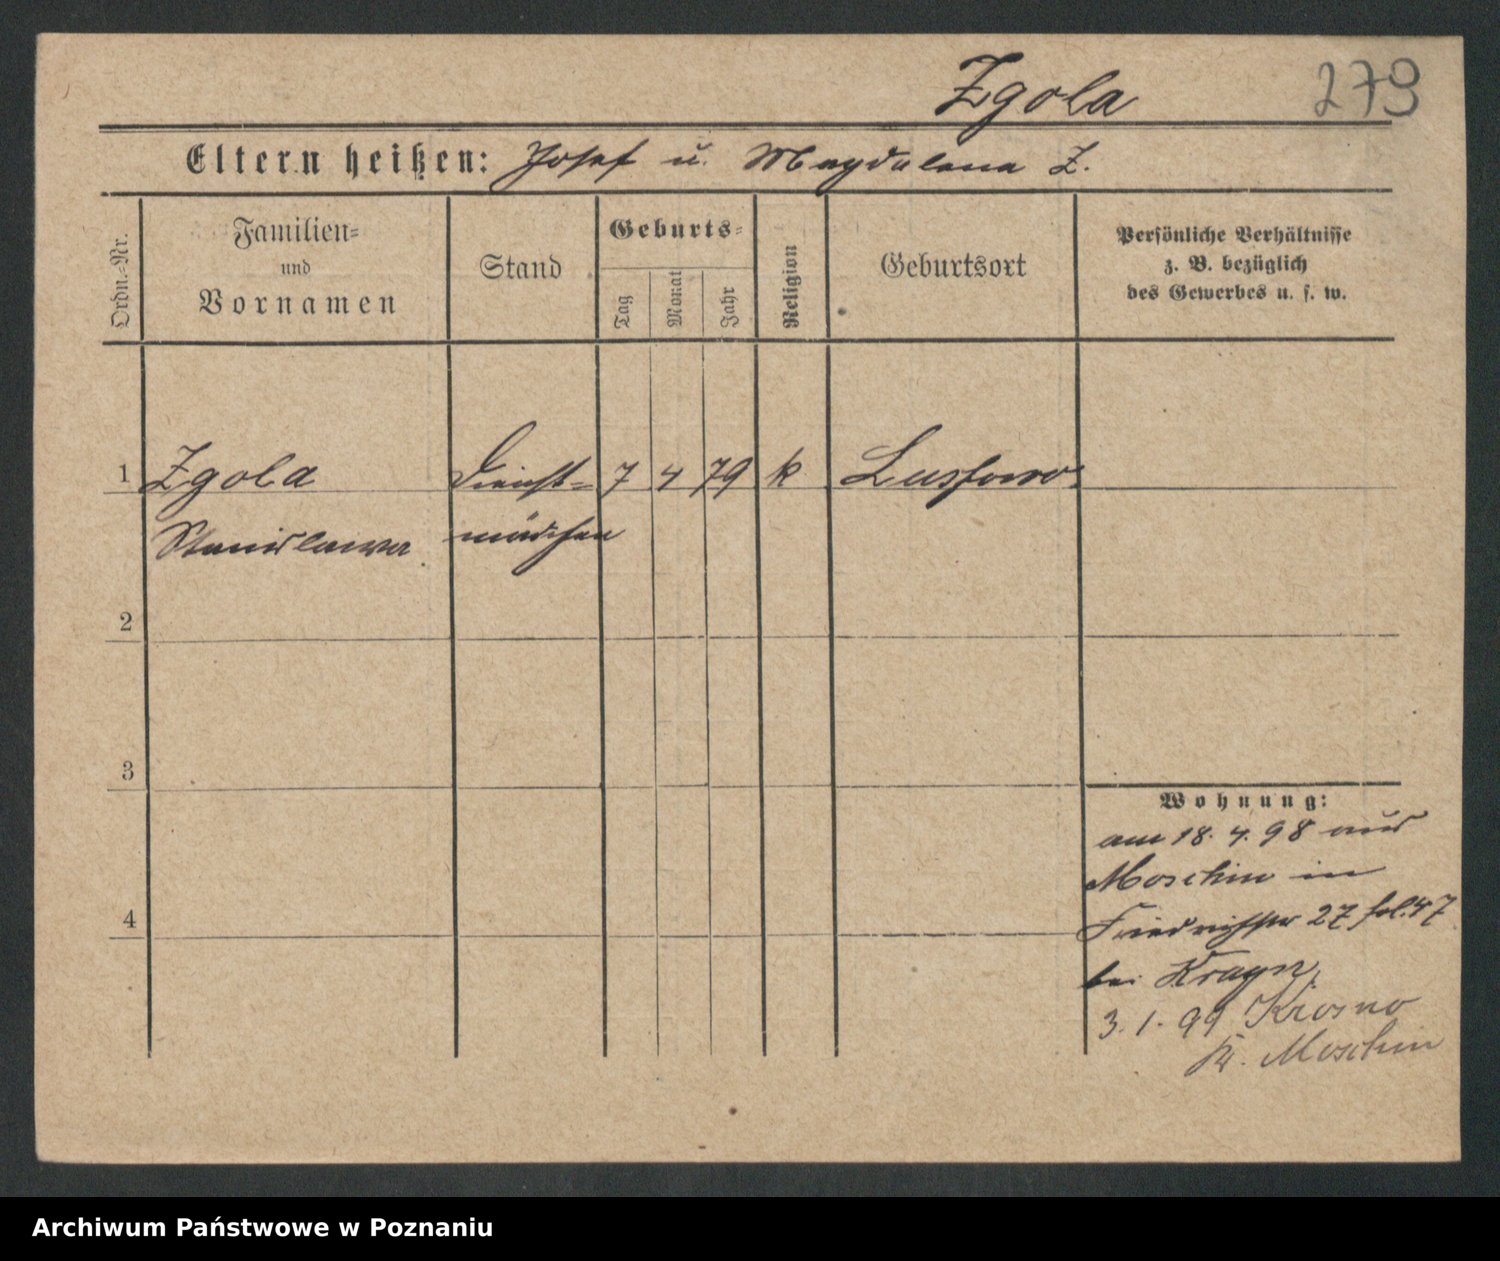 Zgola 279
Eltern heißen: Josef u. Magdalena Z.
Ordn.-Nr.
Familien-
und
Vornamen
Stand
Geburts-
Tag
Monat
Jahr
Religion
Geburtsort
Persönliche Verhältnisse
z. B. bezüglich
des Gewerbes u. s. w.
1 Zgola Dienst- 7 4 79 k
Stanislawa mädchen
2
3
Wohnung:
am 18. 4. 98 aus
Moschin in
4
27 fol. 47
bei
3. 1. 99 Krosno
Kr. Moschin
Archiwum Państwowe w Poznaniu